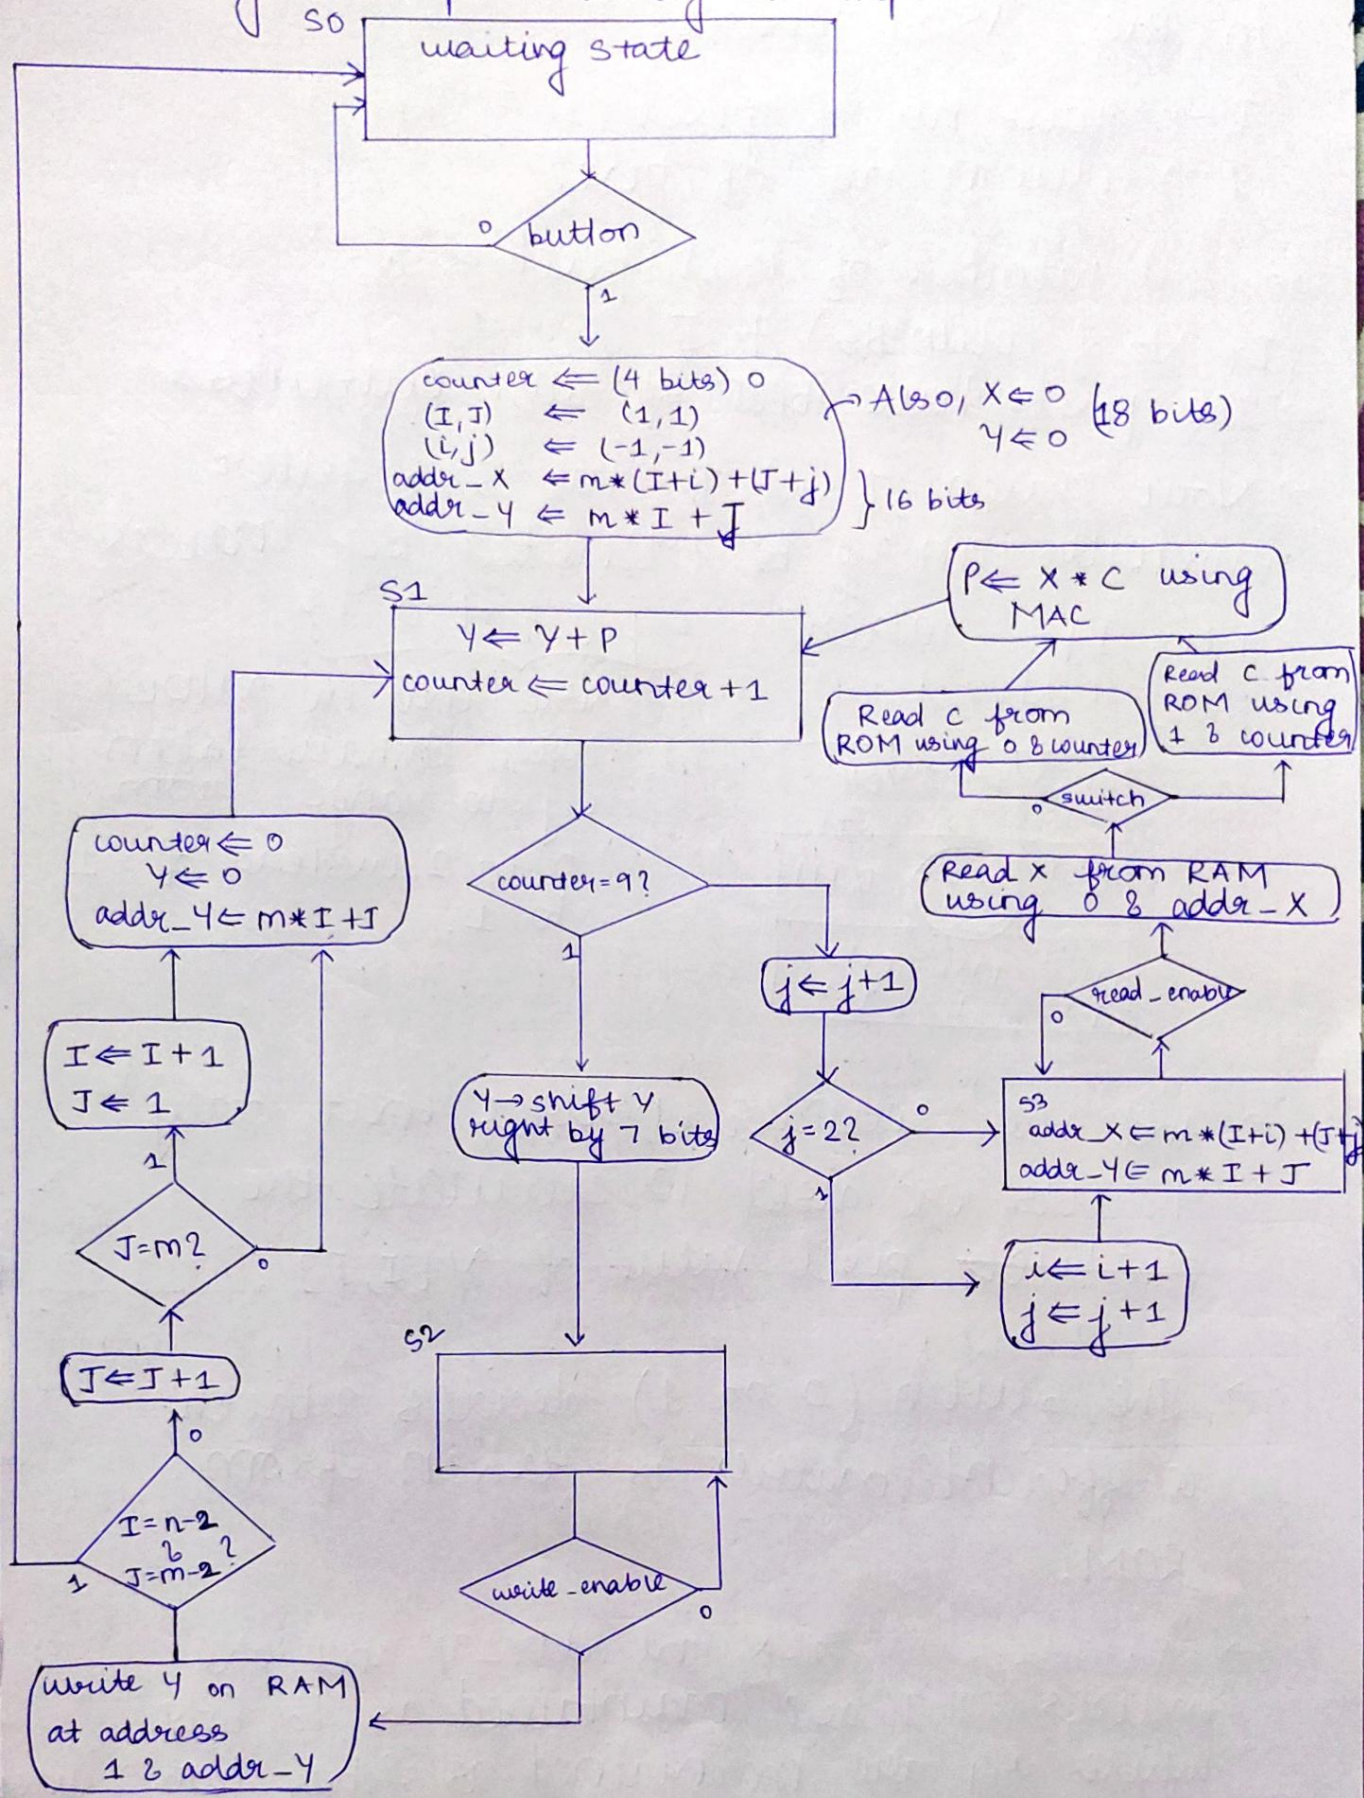 S0
waiting state
button
0
1
counter ⇐ (4 bits) 0
(I,J) ⇐ (1,1)
(i,j) ⇐ (-1,-1)
addr_X ⇐ m*(I+i)+(J+j)
addr_Y ⇐ m*I+J
→ Also, X⇐0
Y⇐0
(18 bits)
} 16 bits
S1
Y⇐Y+P
counter ⇐ counter+1
P⇐ X*C using
MAC
Read C from
ROM using 0 & counter
Read C from
ROM using
1 & counter
switch
0
Read X from RAM
using 0 & addr_X
read_enable
0
S3
addr_X⇐m*(I+i)+(J+j)
addr_Y⇐ m*I+J
i⇐i+1
j⇐j+1
counter=9?
1
j⇐j+1
j=2?
0
1
Y→shift Y
right by 7 bits
S2
write_enable
0
write Y on RAM
at address
1 & addr_Y
I=n-2
&
J=m-2
?
1
0
J⇐J+1
J=m?
0
1
I⇐I+1
J⇐1
counter⇐0
Y⇐0
addr_Y⇐m*I+J